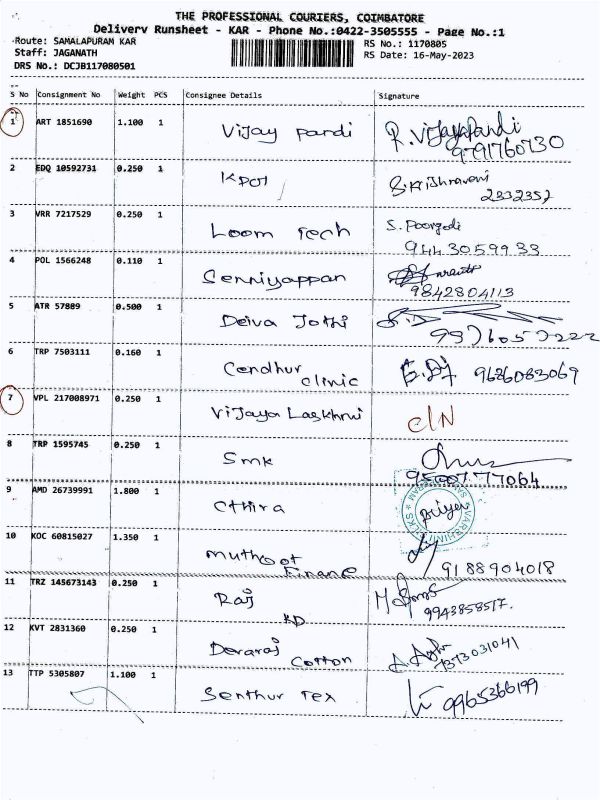 THE PROFESSIONAL COURIERS, COIMBATORE
Delivery Runsheet - KAR - Phone No.:0422-3505555 - Page No.:1
Route: SAMALAPURAM KAR
RS No.: 1170805
Staff: JAGANATH
RS Date: 16-May-2023
DRS No.: DCJB117080501
S No Consignment No Weight PCS Consignee Details Signature
1 ART 1851690 1.100 1 Vijay pandi R. Vijayapandi
9791760730
2 EDQ 10592731 0.250 1 KPCT S. Krishnaveni
2332357
3 VRR 7217529 0.250 1 Loom Tech S. Poongodi
9443059933
4 POL 1566248 0.110 1 Senniyappan
9842804113
5 ATR 57889 0.500 1 Deiva Jothi
6 TRP 7503111 0.160 1 Cendhur clinic 9626083069
7 VPL 217008971 0.250 1 Vijaya Laskhmi CIN
8 TRP 1595745 0.250 1 Smk
9 AMD 26739991 1.800 1 Cthira priya
10 KOC 60815027 1.350 1 muthoot Finance
9188904018
11 TRZ 145673143 0.250 1 Raj KD
9943858517.
12 KVT 2831360 0.250 1 Devaraj Cotton
7373031041
13 TTP 5305807 1.100 1 Senthur Tex 09965366199